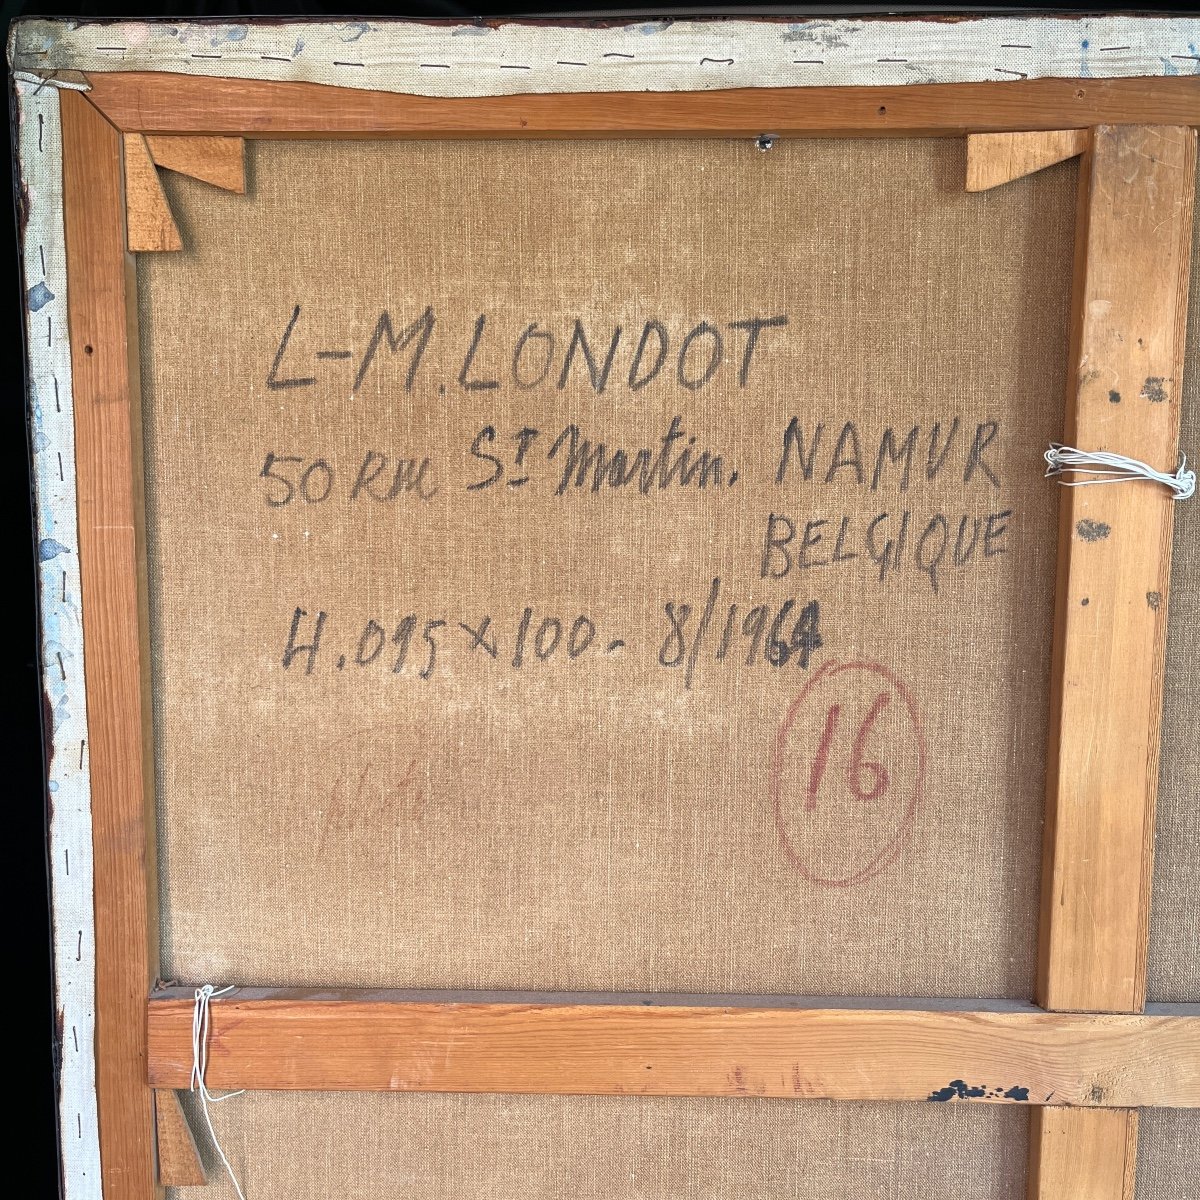 L-M. LONDOT
50 RUE St Martin. NAMUR
BELGIQUE
4.095 x 100 - 8/1964
16